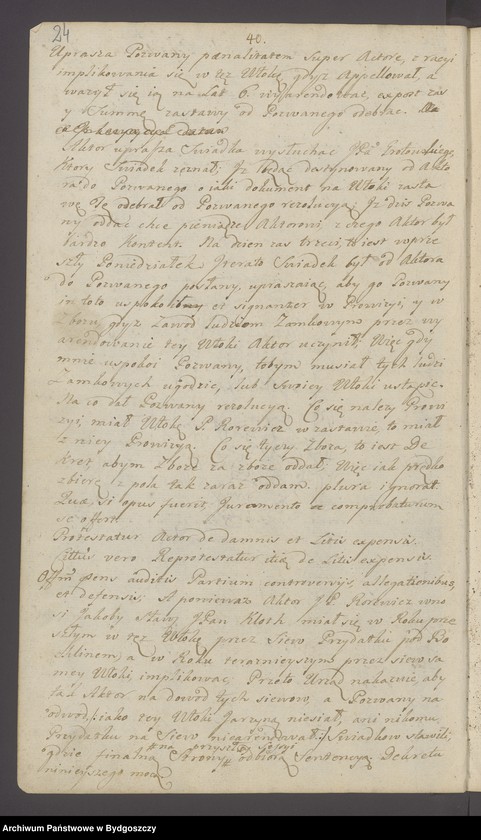 24
40.
Uprasza Pozwany pænalitatem super Actore, z racyi
implikowania się w tęż Włokę, gdyż Appellował, a
ważył się ią na Lat 6. wyarendować, expost zas
y Summę zastawy od Pozwanego odebrac.
Aktor uprasza Swiadka wysłuchać JPa
Ktory Swiadek zeznał; Iż będąc destynowany od Akto
ra do Pozwanego o iaki dokument na Włoki zasta
wę Tę odebrał od Pozwanego rezolucyą; Iż dziś Pozwa
ny oddać chce pieniądze Aktorowi z czego Aktor był
bardzo Kontent. Na dzien zas trzeci, to iest w prze
szły Poniedziałek Iterato Swiadek był od Aktora
do Pozwanego posłany, upraszaiąc, aby go Pozwany
in toto uspokoił et signanter w Prowizyi, y w
Zbożu, gdyz Zawod ludziom Zamkowym przez wy
arendowanie tey Włoki Aktor uczynił; Więc gdy
mnie uspokoi Pozwany, tobym musiał tych ludzi
Zamkowych ugodzic, lub Swoiey Włoki ustąpic.
Na co dał Pozwany rezolucyą. Co się nalezy Prowi
zyi, miał Włokę P. Korewicz w zastawie, to miał
z niey Prowizyą. Co się tyczy Zboża, to iest De
kret, abym Zboże za zboze oddał; Więc iak prędko
zbiorę z pola tak zaraz oddam. plura ignorat.
Quæ, si opus fuerit, Juramento comprobaturum
se offert.
Protestatur Actor de damnis et Litis expensis.
Citatus vero Reprotestatur itidem de Litis expensis.
Offm præns auditis Partium controversiis, allegationibus,
et defensis; A ponieważ Aktor J.P. Korewicz wno
si Jakoby Sławny JPan Kloth miał się w Roku prze
szłym w tęż Włokę przez Siew Przydatku pod
a w Roku teraznieyszym przez siew sa
mey Włoki implikowac; Przeto Urząd nakazuie, aby
taż Aktor na dowod tych siewow, a Pozwany na
odwod, iako tey Włoki Jarzyną niesiał, ani nikomu
Przydatku na Siew niearendował, Swiadkow stawili;
na przyszłey Sessyi
gdzie finalną Strony odbiorą Sentencyą. Dekretu
ninieyszego mocą.
Archiwum Państwowe w Bydgoszczy